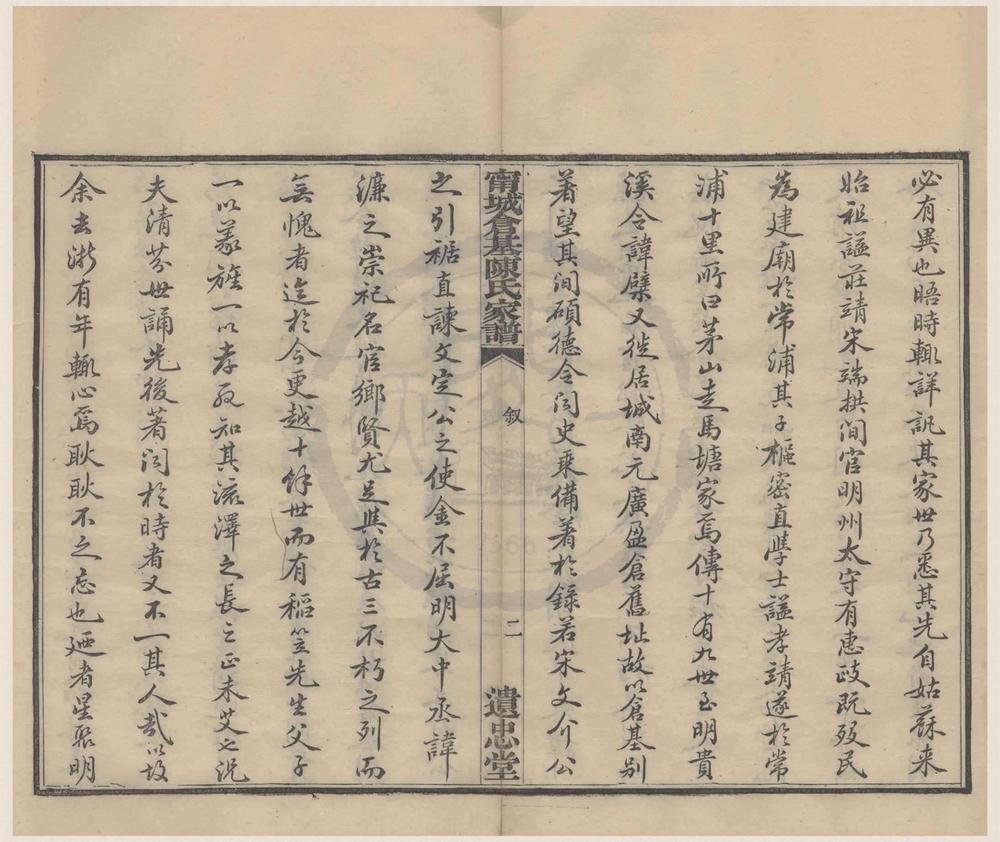 必有異也晤時輙詳訊其家世乃悉其先自姑蘇来
始祖謚莊靖宋端拱间官明州太守有惠政既殁民
為建廟於常浦其子樞密直學士謚孝靖遂於常
浦十里所曰茅山走馬塘家焉傳十有九世至明貴
溪令諱檗又徙居城南元廣盈倉舊址故以倉基别
著望其间碩德令闻史乘備著於錄若宋文介公
甯城倉基陳氏家譜
叙
二
遺忠堂
之引裾直諫文定公之使金不屈明大中丞諱
濂之崇祀名宦鄉賢尤足與於古三不朽之列而
無愧者迄於今更越十餘世而有稻笠先生父子
一以義旌一以孝知其流澤之長之正未艾也况
夫清芬世誦先後著闻於時者又不一其人哉以故
余去浙有年輙心焉耿耿不之忘也廼者星聚明